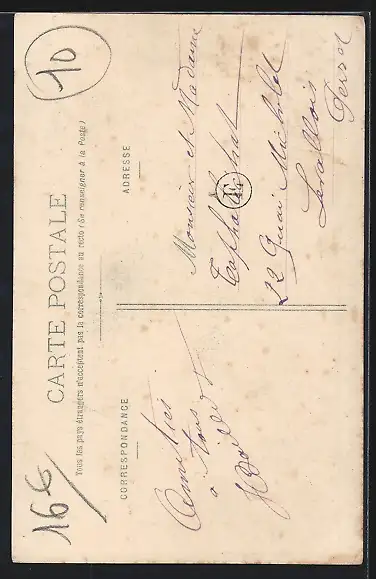 10
16 €
CARTE POSTALE
Tous les pays étrangers n'acceptent pas la correspondance au recto (Se renseigner à la Poste)
CORRESPONDANCE
Amitiés
à tous
ADRESSE
Monsieur et Madame
22 Quai Michelet
Levallois
Perret